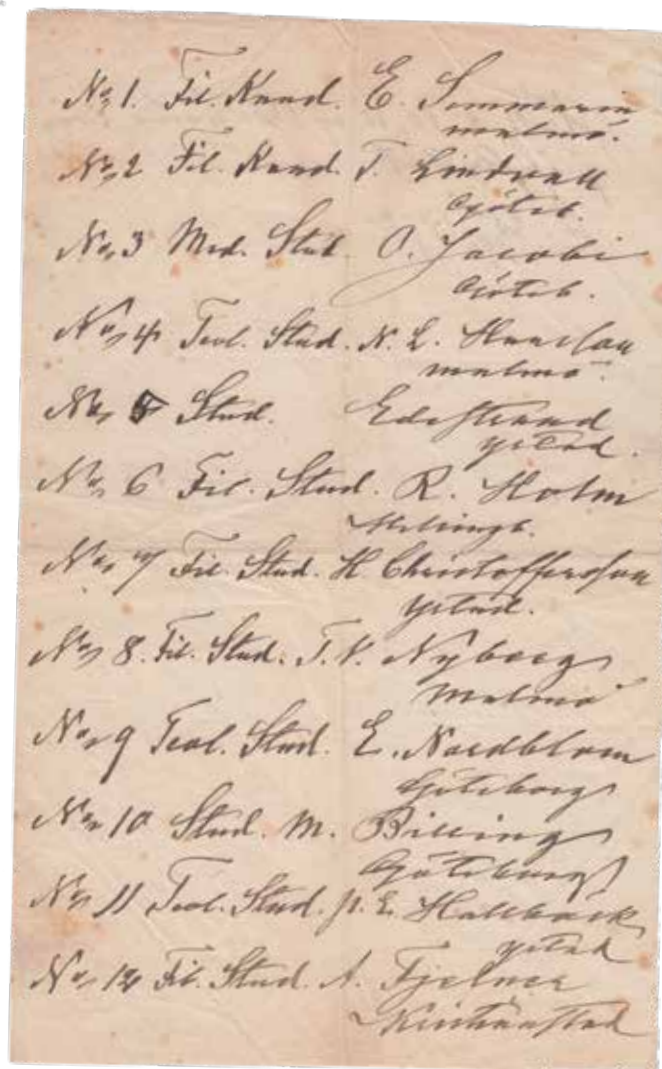 No 1. Fil. Kand. E. Sommarin
Malmö.
No 2 Fil. Kand. T. Lindvall
Göteb.
No 3 Med. Stud. O. Jacobi
Göteb.
No 4 Teol. Stud. N. L.
Malmö.
No 5 Stud. Edestrand
Ystad.
No 6 Fil. Stud. R. Holm
Helsingb.
No 7 Fil. Stud. H. Christofferson
Ystad.
No 8. Fil. Stud. T. V. Nyborg
Malmö
No 9 Teol. Stud. E. Nordblom
Göteborg
No 10 Stud. M. Billing
Göteborg
No 11 Teol. Stud. P. E. Hallbäck
Ystad
No 12 Fil. Stud. A. Fjelner
Kristianstad